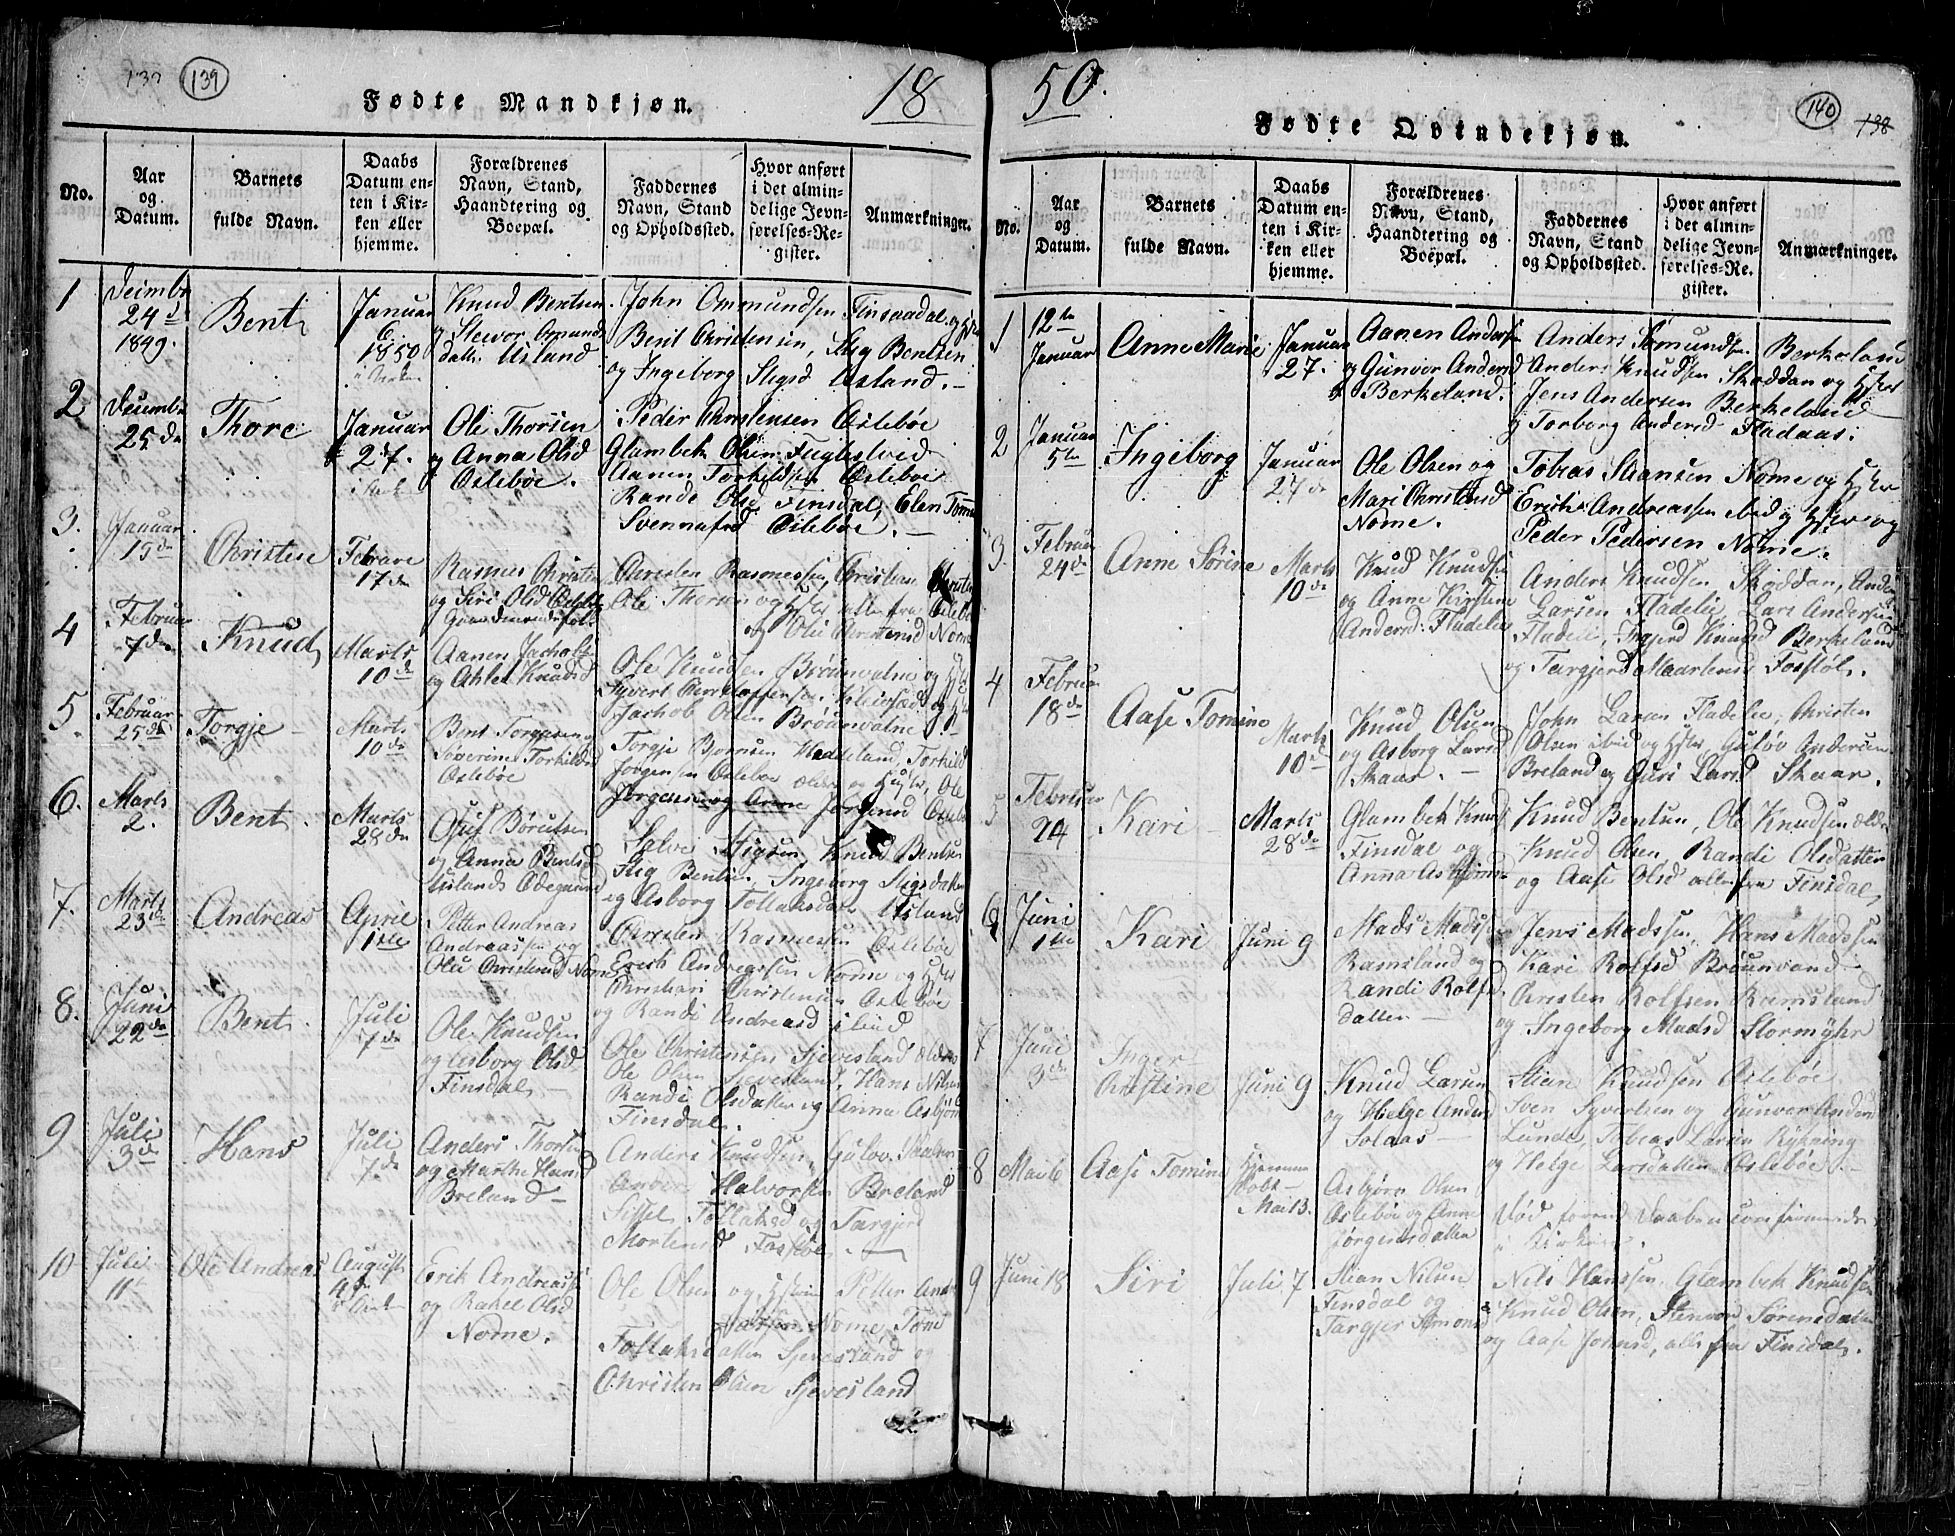 139
Fødte Mandkjøn.
18
No.
Aar og Datum.
Barnets fulde Navn.
Daabs Datum enten i Kirken eller hjemme.
Forældrenes Navn, Stand, Haandtering og Boepæl.
Faddernes Navn, Stand og Opholdssted.
Hvor anført i det almindelige Jevnførelses-Register.
Anmærkninger.
1
24d
1849.
Bent
Januar
6
1850
Knud Bentsen
og
Aasland
John Omundsen Finsaadal og
Bent Christensen, Stig Bentsen
og Ingeborg Stigsd Aasland.
2
25de
Thore
Januar
27.
Ole Thorsen
og Anna Olsd
Oslebøe.
Peder Christensen Oslebøe
Glambek Olsen Fuglestvid
Aanen Torkildsen Oslebøe
Rande Olsd Finsdal, Elen Tomine
Svennafrd Oslebøe.
3.
Januar
15de
Christen
Febrare
17de
Rasmus Christen
og Siri Olsd
Christen Rasmussen, Christian
Ole Thorsen og alle fra
og Olu Christensd Nome
4
Februar
7de
Knud
Marts
10d
Aanen Jacobs
og Aslet Knudsd
Ole Knudsen Brøunvalne og
Syvert
Jachob Olsen Brøunvalne
5
Februar
25de
Torgje
Marts
10de
Bent Torgusen
Severine Torkildsd
Oslebøe
Torgje Bjornsen Haadeland, Torkild
Jørgensen Oslebøe Ole
Jørgensen og Anne Jørgensd
6.
Marts
2.
Bent
Marts
28de
Oluf Børufsen
og Anna Bentsd
Salve Stigsen, Knud Bentsen
Stig Bentsen, Ingeborg Stigsdatter
og Asborg Tollaksdatter Aasland
7.
Marts
23de
Andreas
April
1ste
Petter Andreas
Andreassen og
Olu Christensd Nome
Christen Rasmussen Oslebøe
Erik Andreassen Nome og
Christensen Oslebøe
og Randi Andreasd ibid
8.
Juni
22de
Bent
Juli
7de
Ole Knudsen
og Asborg Olsd
Finsdal
Ole Christensen Sjevesland
Ole Olsen Sjevesland, Hans Nilsen
Randi Olsdatter og Anna Asbjørn
Finsdal.
9
Juli
3de
Hans
Juli
7de
Anders Thorsen
og Marthe Hansd
Breland
Anders Knudsen, Gulov
Halvorsen Breland
Sissel Tollaksd og Targjerd
Mortensd Fosstøl
10
Juli
11t
Ole Andreas
August
4d
Erik Andreassen
og Rakel Olsd
Nome.
Ole Olsen og Petter
Nome, Tone
Tollaksdatter Sjevesland og
Christen Olsen Sjevesland
50.
140
138
Fødte Qvindekjøn.
No.
Aar og Datum.
Barnets fulde Navn.
Daabs Datum enten i Kirken eller hjemme.
Forældrenes Navn, Stand, Haandtering og Boepæl.
Faddernes Navn, Stand og Opholdssted.
Hvor anført i det almindelige Jevnførelses-Register.
Anmærkninger.
1
12te
Januar
Anne Marie
Januar
27.
Aanen Andersen
og Gunvor Andersd
Berkeland.
Anders Somundsen Berkeland
Anders Knudsen Skoddan og
Jens Andersen Berkeland
og Torborg Andersd Fladaas.
2
Januar
5te
Ingeborg
Januar
27de
Ole Olsen og
Mari Christensd
Nome.
Tobias Stiansen Nome og
Erick Andreassen ibid og
Peder Pedersen Nome.
3.
Februar
24de
Anne Sørine
Marts
10de
Knud Knudsen
og Anne Kirstine
Andersd: Fladelie
Anders Knudsen Skoddan,
Larsen Fladelie, Lars Andersen
Fladelie, Ingjerd Knudsd Berkeland
og Targjerd Maartensd Fosstøl.
4
Februar
18de
Aase Tomine
Marts
10d
Knud Olsen
og Asborg Larsd
Skaar.
John Larsen Fladelie, Christen
Olsen ibid og Gulov Andersen
Breland og Guri Larsd Skaar.
5
Februar
24
Kari
Marts
28de
Glambek Knud
Finsdal og
Anna Asbjørns
Knud Bentsen, Ole Knudsen ældr
Knud Olsen, Randi Olsdatter
og Aase Olsd alle fra Finsdal.
6
Juni
1ste
Kari
Juni 9
Mads Madssen
Ramsland og
Randi Rolfs
datter
Jens Madssen, Hans Madssen
Kari Rolfsd Brøunvand
Christen Rolfsen Ramsland
og Ingeborg Madsd Stormyhr
7
Juni
3de
Inger
Christine
Juni 9
Knud Larsen
og Helge Andersd
Solaas
Stian Knudsen Oslebøe
Sven Syvertsen og Gunvor Andersd
Lunde, Tobias Larsen Rykning
og Helge Larsdatter Oslebøe
8
Mai 6
Aase Tomine
Hjemme
døbt
Mai 13.
Asbjørn Olsen
Oslebøe og Anne
Jørgensdatter
Død forend Daaben confirmeredes
i Kirken.
9
Juni 18
Siri
Juli 7
Stian Nilsen
Finsdal og
Targjer Simonsd
Nils Hanssen, Glambek Knudsen
Knud Olsen, Stenvor Sørensdatter
og Aase Jornsd, alle fra Finsdal.